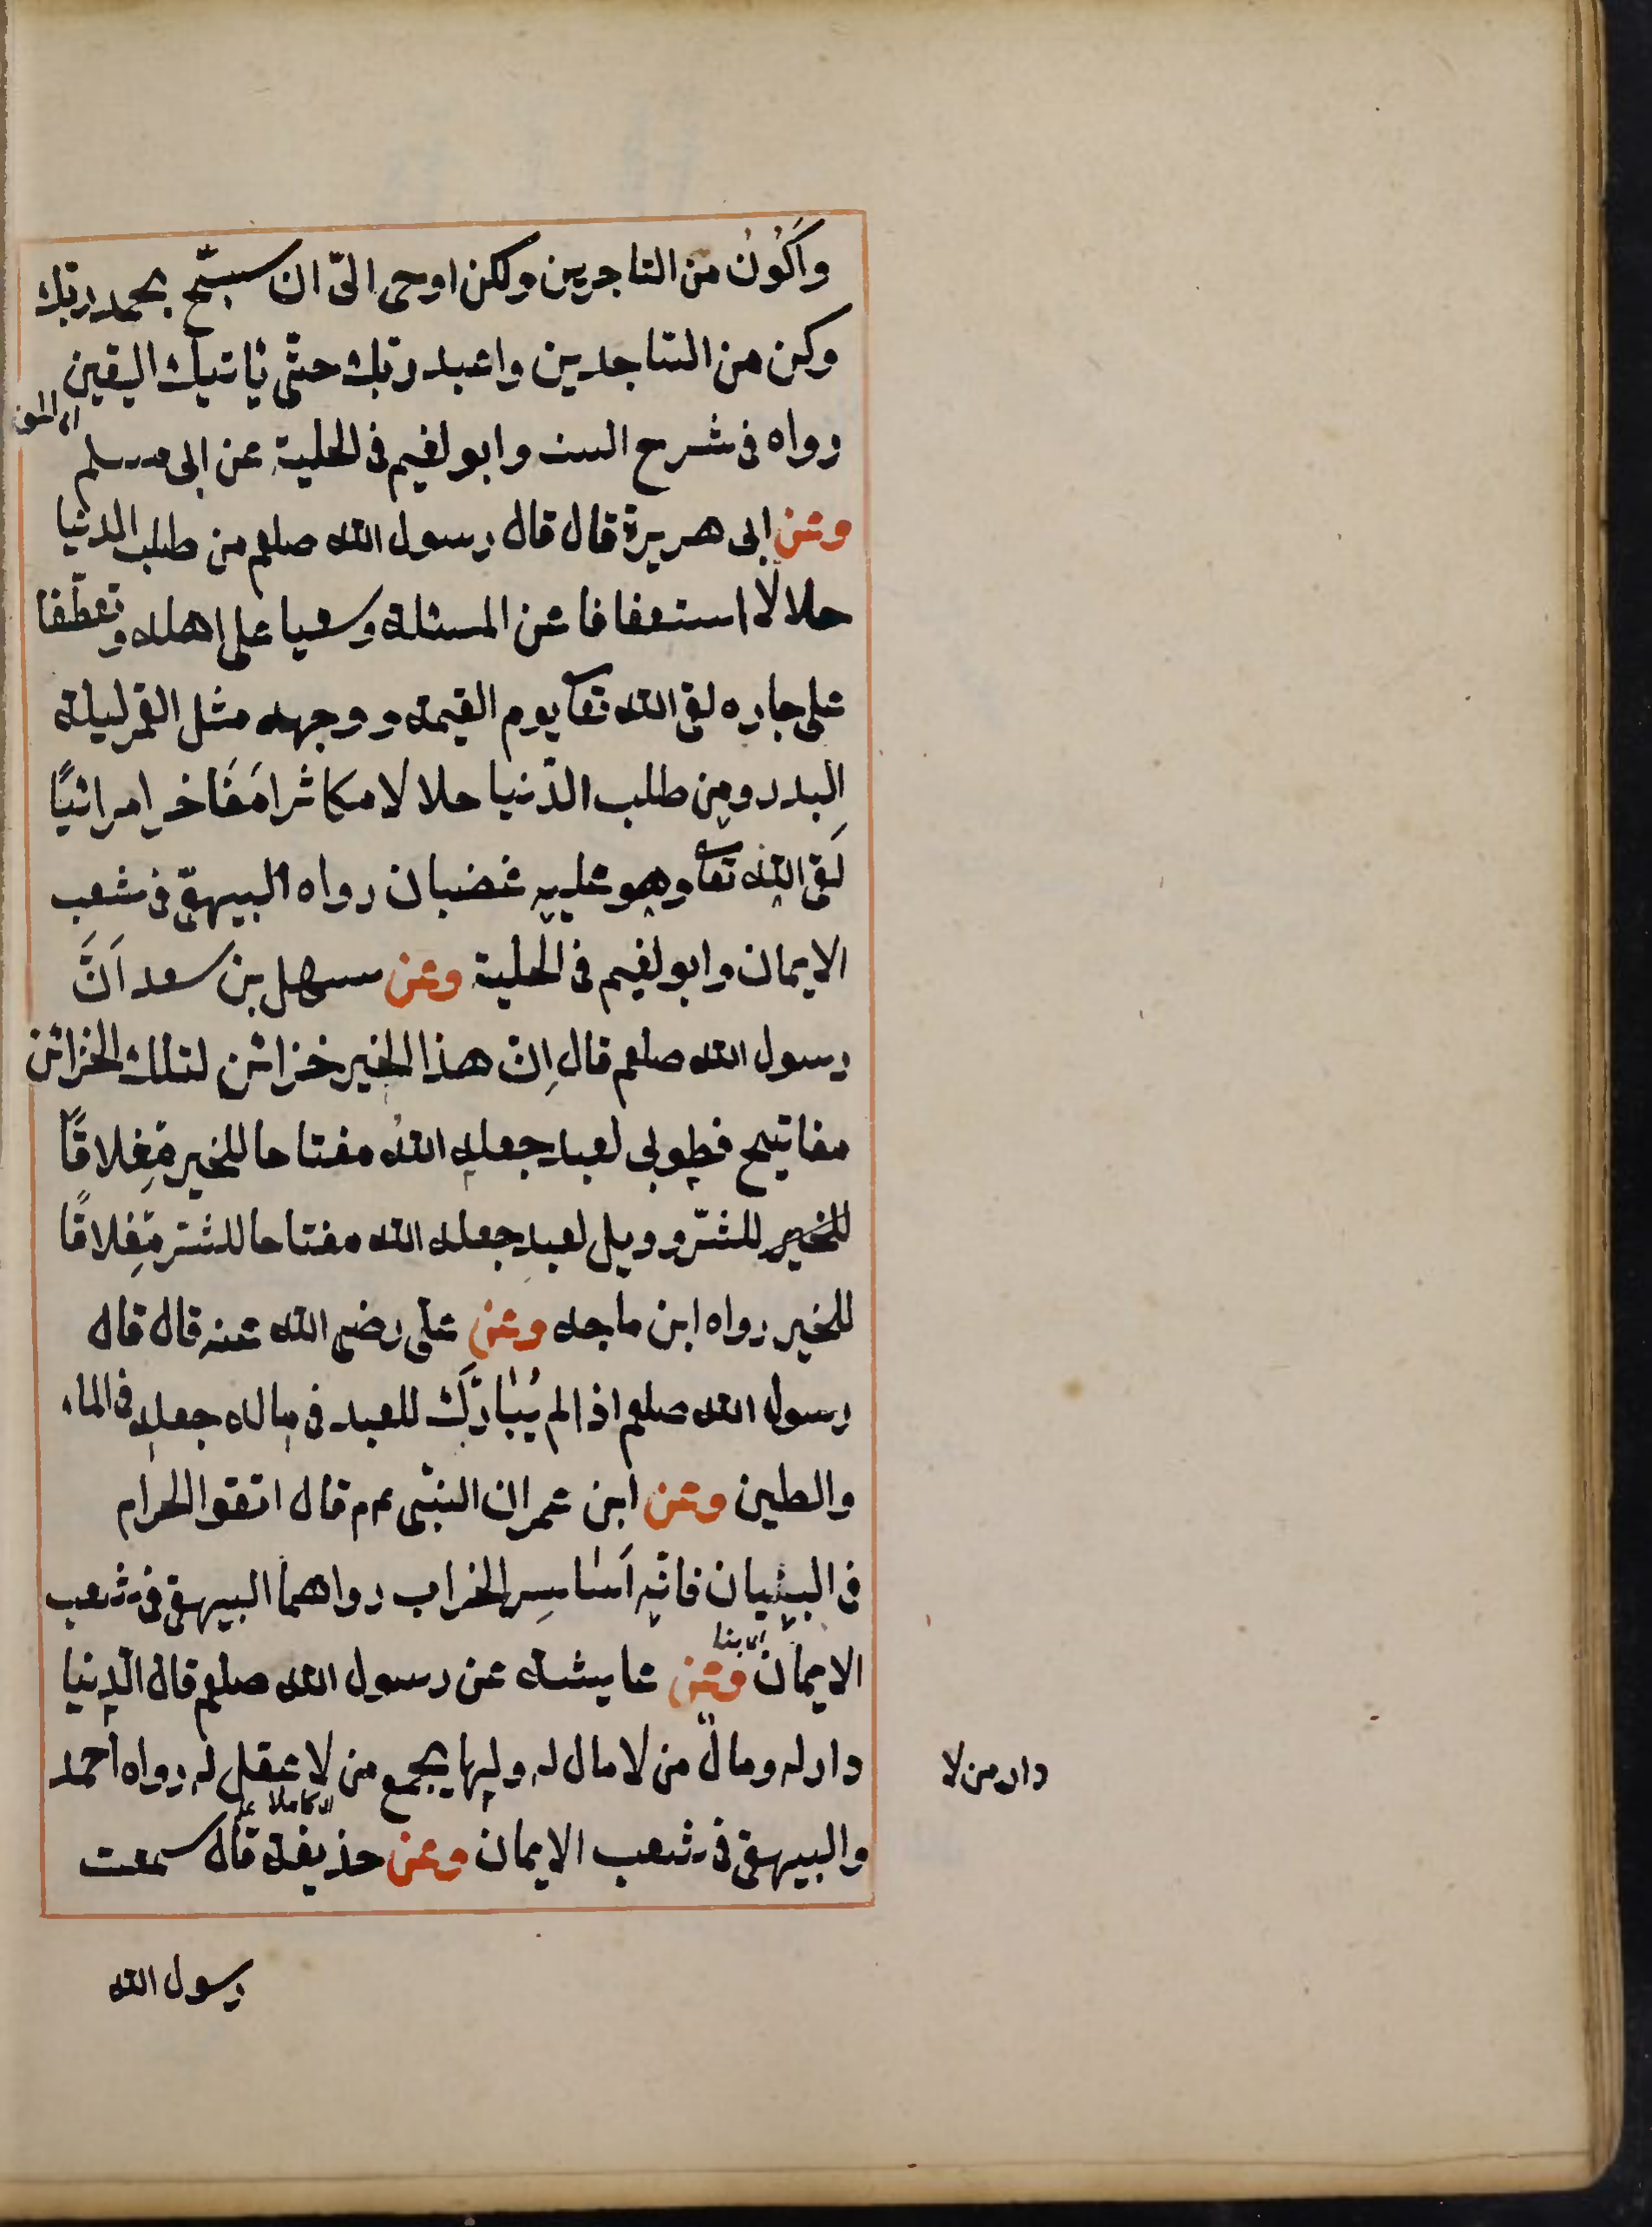 وَاَكُوْنَ من التاجرين ولكن اوحى الىّ ان سبّح بحمد ربّك
وكن من السّاجدين واعبد ربّك حتّى ياتيك اليقين
اى الموت
رواه فى شرح السنة وابو نعيم فى الحلية عن ابى مسلم
وعن ابى هريرة قال قال رسول الله صلعم من طلب الدنيا
حلالًا استعفافا عن المسئلة وسعيا على اهله وتعطّفا
على جاره لقى الله تعا يوم القيمة ووجهه مثل القمر ليلة
البدر ومن طلب الدّنيا حلالا مكاثرا مفاخرا مرائيًا
لَقى الله تعا وهو عليه غضبان رواه البيهقى فى شعب
الايمان وابو نعيم فى الحلية وعن سهل بن سعد اَنَّ
رسول الله صلعم قال اِنّ هذا الخير خزائن لتلك الخزائن
مفاتيح فطوبى لعبد جعله اللهُ مفتاحا للخير مِغلاقًا
للخير للشرّ وويل لعبد جعله الله مفتاحا للشر مِغلاقًا
للخير رواه ابن ماجه وعن علىّ رضى الله عنه قال قال
رسول الله صلعم اذا لم يُبَارَك للعبد فى ماله جعله فى الماء
والطين وعن ابن عمر ان النبّى عم م قال اتقوا الحرام
فى البينيان فانّه اَسَاسِ الخراب رواهما البيهقى فى شعب
الايمان وعن عايشه عن رسول الله صلعم قال الدنيا
دار له ومال من لا مال له ولها يجمع من لا عقل له رواه احمد
دار من لا
والبيهقى فى شعب الايمان وعن حذيفة قال سمعت
رسول الله